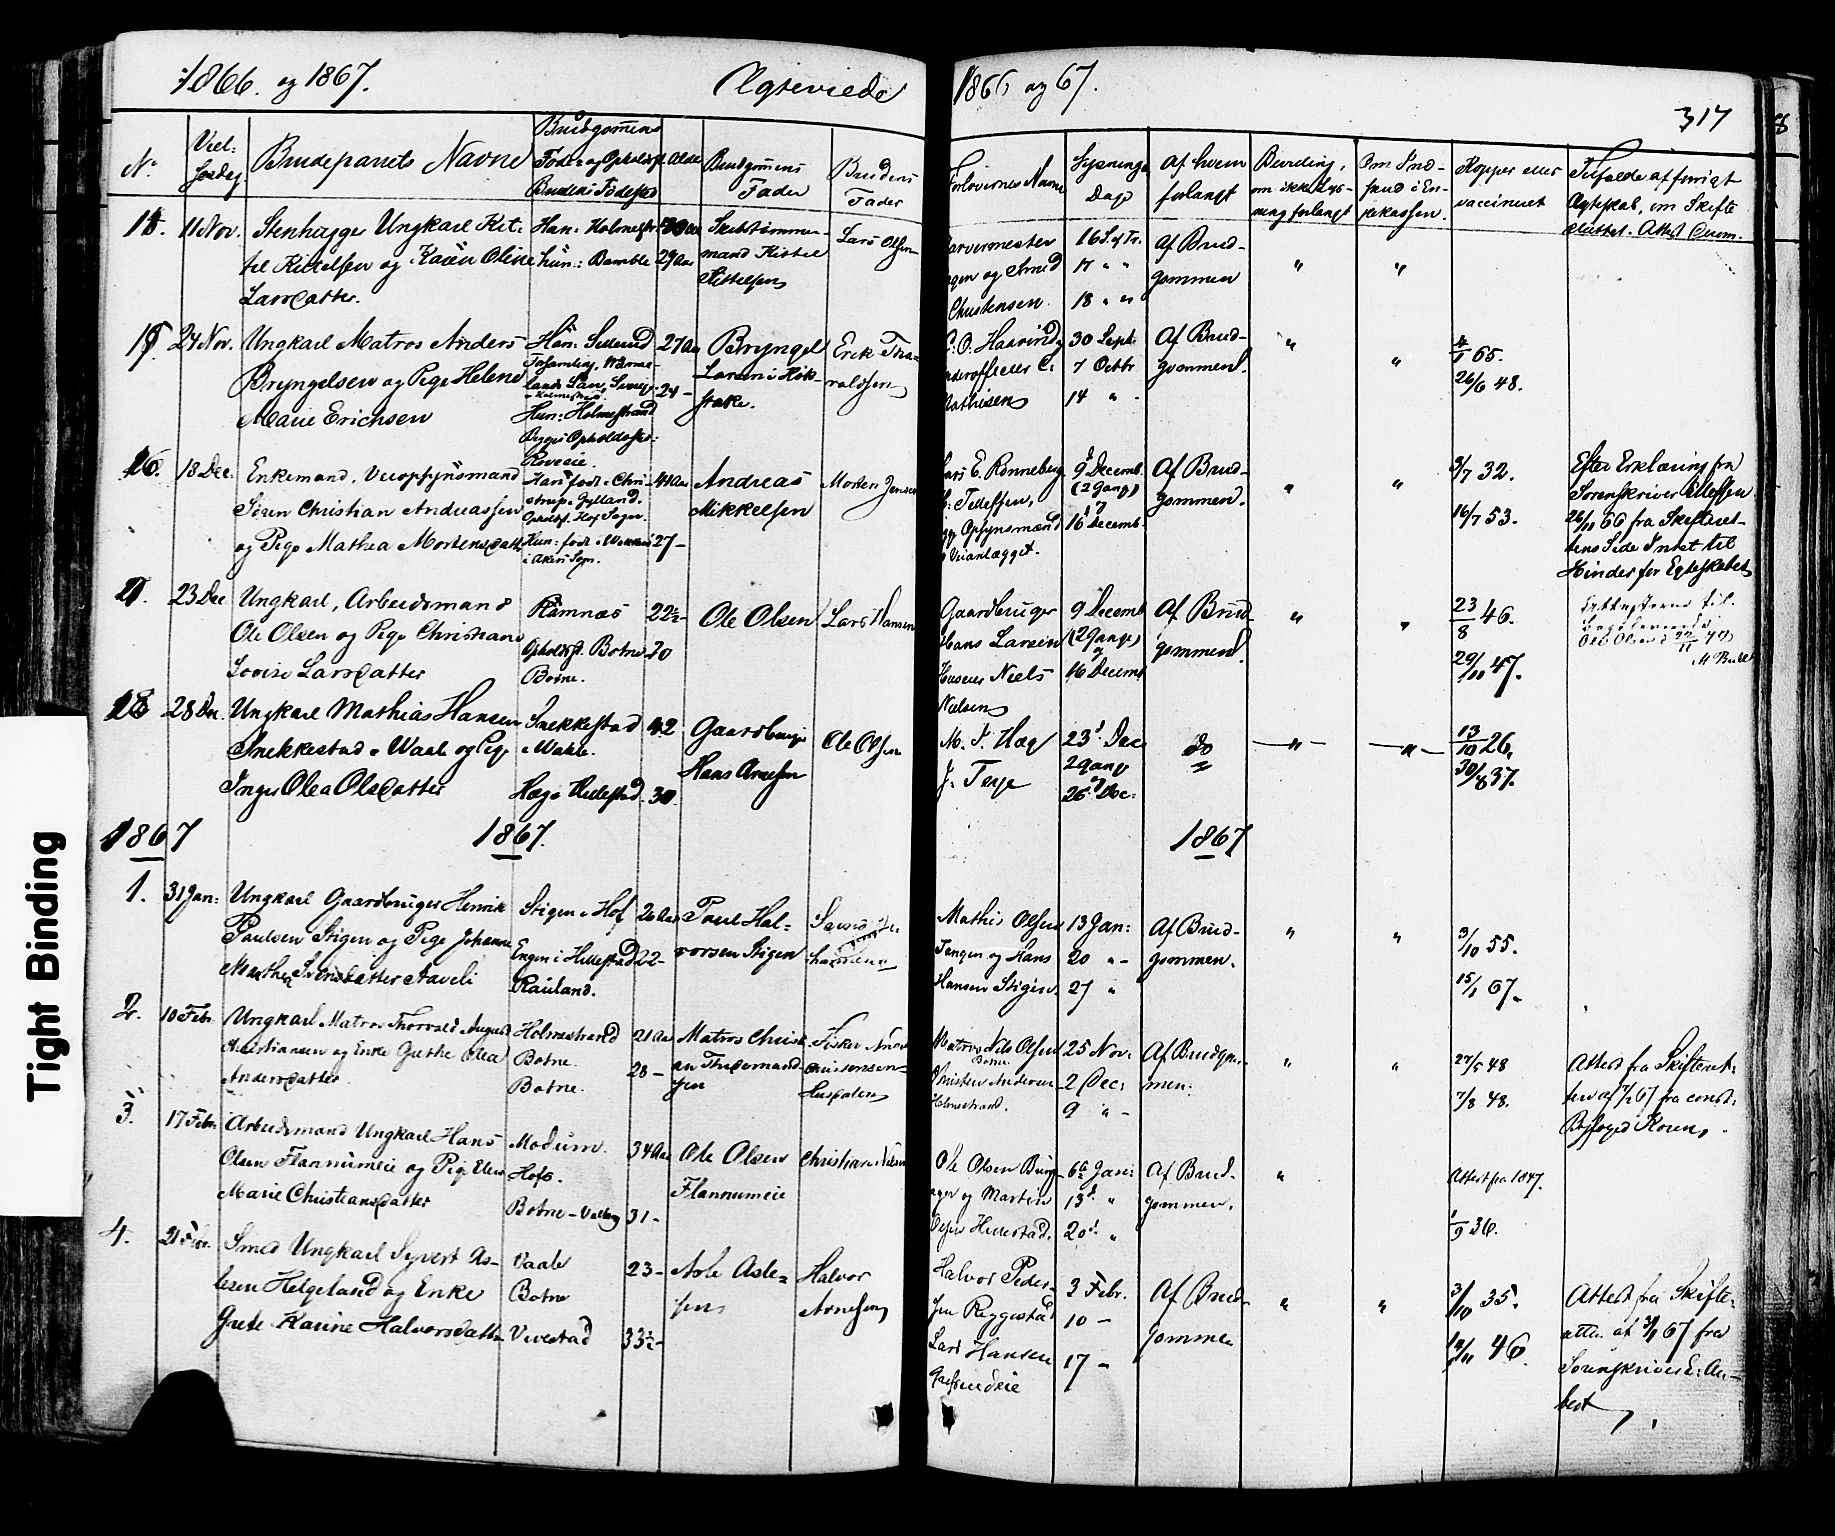 1866. og 1867. Ægteviede 1866 og 67.
317
No
Viel:
sesdag.
Brudeparrets Navne
Brudgommens
Føde og Opholdsst.
Brudens Fødested
Alder
Brudgommens
Fader
Brudens
Fader
Forlovernes Navne
Lysnings
Dage
Af hvem
forlangt
om ikke Lys-
ning forlangt
Om Ind-
jekassen.
Kopper eller
vaccineret
Tilfælde af forrigt
Ægteskab, om Skifte
sluttet. Attest
11 Nov.
Stenhugger Ungkarl Kit-
til Kittelsen og Karen Oline
Larsdatter.
Han: Holmestr
hun: Bamble
29 Aar
Skibstømmer-
mand Kittel
Kittelsen
Lars Olsen
og Smed
Christensen.
16 S. e. Tr.
17 " "
18 " "
Af Brud-
gommen
"
"
24 Nov.
Ungkarl Matros Anders
Bryngelsen og Pige Helene
Marie Erichsen
Han:
Hun: Holmestrand
27 Aar
24 -
Bryngel
Larsen
Erik Tha-
raldsen
Mathisen
30 Sept.
7 Octbr
14 " -
Af Brud-
gommen.
"
"
65.
26/6 48.
16.
18 Dec.
Enkemand, Veiopsynsmand
Søren Christian Andreassen
og Pige Mathea Mortensdatt
Han født i Chri-
strup i Jylland.
Opholdsst. Hof Sogn.
Hun: født i
i Akers Sogn.
44 Aar
27 -
Andreas
Mikkelsen
Morten Jensen
Lars E. Rønneberg
Opsynsmænd
Veianlægget.
9 Decemb.
(2 Gang)
16 Decemb.
Af Brud-
gommen.
"
"
3/7 32.
16/7 53.
Efter Erklæring fra
Sorenskriver Ellessen
26/11 66 fra Skifteret-
tens Side Intet til
Hinder for Egteskabet
23 Dec
Ungkarl, Arbeidsmand
Ole Olsen og Pige Christiane
Lovise Larsdatter
Ramnæs
Opholdsst. Botne
Botne.
22½-
20
Ole Olsen
Lars Hansen
Gaardbruger
Hans Larsen
Niels
Nielsen
9 Decemb
(2 Gange)
16 Decemb
Af Brud-
gommen.
"
"
23/8 46.
29/11 47.
til
Ole Olsen
28 Dec.
Ungkarl Mathias Hansen
Snekkestad i Waale og Pige
Inger Olea Olsdatter
Snekkestad
i Wahle.
Hæg i Hillestad
42
30.
Gaardbruger
Hans Arnesen
Ole Olsen
M. J. Hæg
J. Teige
23d Dec
2 Gang
26d Dec:
do
"
"
13/10 26.
30/8 37.
1867 1867. 1867
1.
31 Jan:
Ungkarl Gaardbruger Henrik
Paulsen Stigen og Pige Johanne
Marthea Svensdatter Aaveli
Stigen i Hof
Engen i Hillestad
Rauland.
26 Aar
22-
Poul Hal-
vorsen Stigen
Mathis Olsen
Tangen og Hans
Hansen Stigen.
13 Jan:
20 " -
27 "
Af Brud-
gommen.
"
"
3/10 55.
15/1 67.
2.
10 Febr.
Ungkarl Matros Thorvald August
Christiansen og Enke Grethe Olea
Andersdatter
Holmestrand
Botne.
Botne.
21 Aar
28 -
Matros Christi
an Thidemand-
sen
Fisker Anders
Christensen
Matros Nils Olsen
Botne
Christen Andersen
Holmestrand.
25 Nov.
2 Dec:
9 " -
Af Brudgom-
men.
"
"
27/5 48
7/8 48.
Attest fra Skifteret-
ten af 7/2 67 fra const:
Byfoged Koren.
3.
17 Febr.
Arbeidsmand Ungkarl Hans
Olsen Flannumeie og Pige Elen
Marie Christiansdatter
Modum.
Hofs.
Botne - Valberg
34 Aar
31 -
Ole Olsen
Flannumeie
Christian Nilsen
Ole Olsen Burg-
ager og Martin
Hillestad.
6te Jan:
13d "
20d "
Af Brud-
gommen.
"
Attest fra 1847.
1/9 36.
4.
21 Febr.
Smed Ungkarl Syvert As-
lesen Helgeland og Enke
Grete Karine Halvorsdatter
Vaale
Botne
Vivestad
23 -
33½ -
Asle Asle-
sen
Halvor
Arnesen
Halvor Peder-
sen Reggestad
Lars Hansen
3 Febr.
10 -
17 -
Af Brud-
gommen
"
"
3/10 35.
12/11 46.
Attest fra Skifte-
retten af 3/1 67 fra
Sorenskriver E: An-
bert

Tight Binding